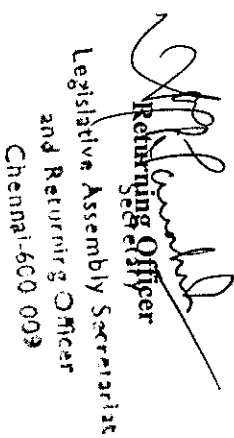 Returning Officer
Secretary
Legislative Assembly Secretariat
and Returning Officer
Chennai-600 009